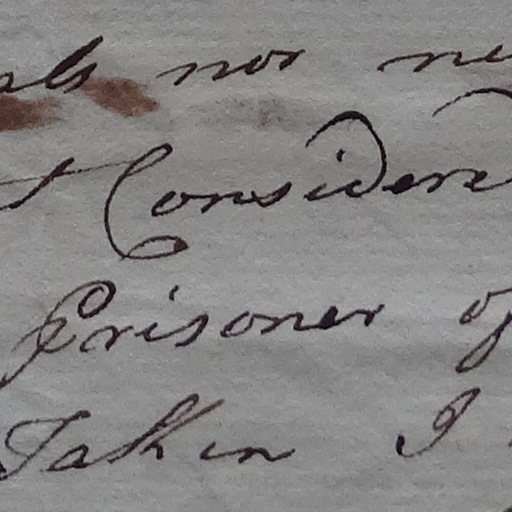 als nor ne
t Considered
Prisoner of
Taken I